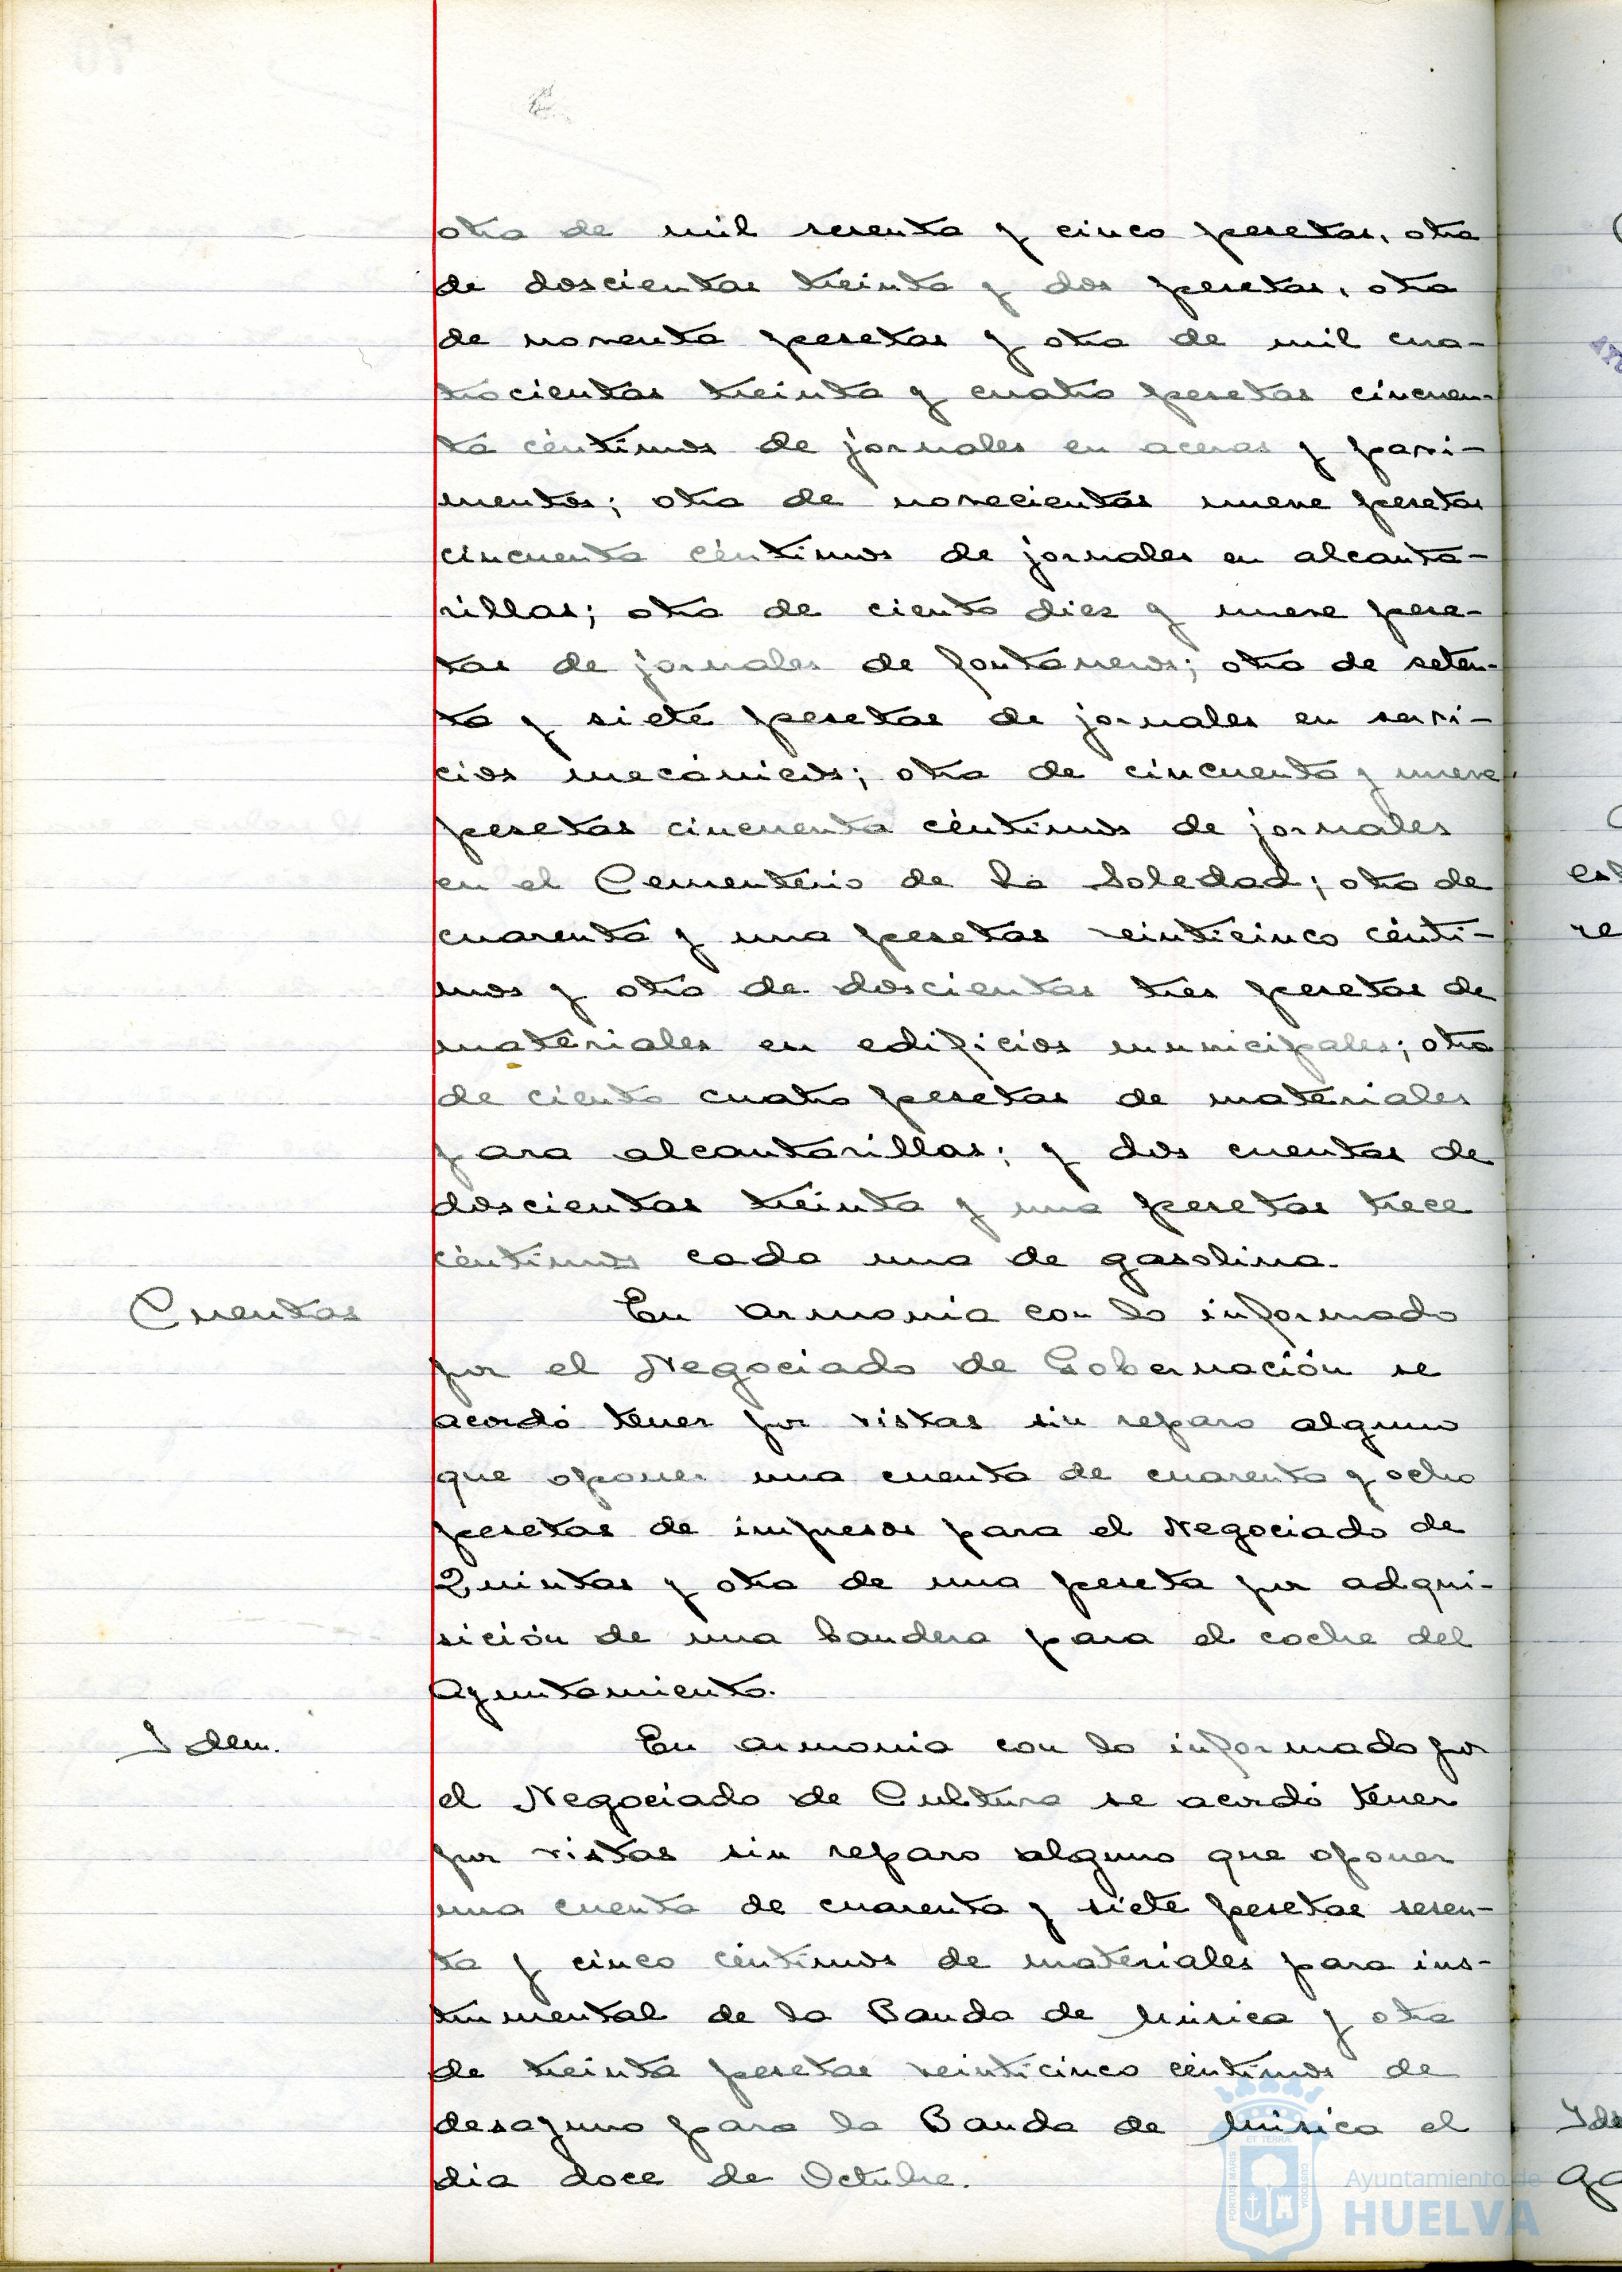 otra de mil sesenta y cinco pesetas, otra
de doscientas treinta y dos pesetas, otra
de noventa pesetas y otra de mil cua-
trocientas treinta y cuatro pesetas cincuen-
ta céntimos de jornales en aceras y pavi-
mentos; otra de novecientas nueve pesetas
cincuenta céntimos de jornales en alcanta-
rillas; otra de ciento diez y nueve pese-
tas de jornales de fontaneros; otra de seten-
ta y siete pesetas de jornales en servi-
cios mecánicos; otra de cincuenta y nueve
pesetas cincuenta céntimos de jornales
en el Cementerio de la Soledad; otra de
cuarenta y una pesetas veinticinco cénti-
mos y otra de doscientas tres pesetas de
materiales en edificios municipales; otra
de ciento cuatro pesetas de materiales
para alcantarillas; y dos cuentas de
doscientas treinta y una pesetas trece
céntimos cada una de gasolina.
Cuentas
En armonia con lo informado
por el Negociado de Gobernación se
acordó tener por vistas sin reparo alguno
que oponer una cuenta de cuarenta y ocho
pesetas de impresos para el Negociado de
Quintas y otra de una peseta por adqui-
sición de una bandera para el coche del
Ayuntamiento.
Idem.
En armonia con lo informado por
el Negociado de Cultura se acordó tener
por vistas sin reparo alguno que oponer
una cuenta de cuarenta y siete pesetas sesen-
ta y cinco céntimos de materiales para ins-
trumental de la Banda de Música y otra
de treinta pesetas veinticinco céntimos de
desayuno para la Banda de Música el
dia doce de Octubre.
PORTUS MARIS ET TERRAE CUSTODIA
Ayuntamiento de
HUELVA